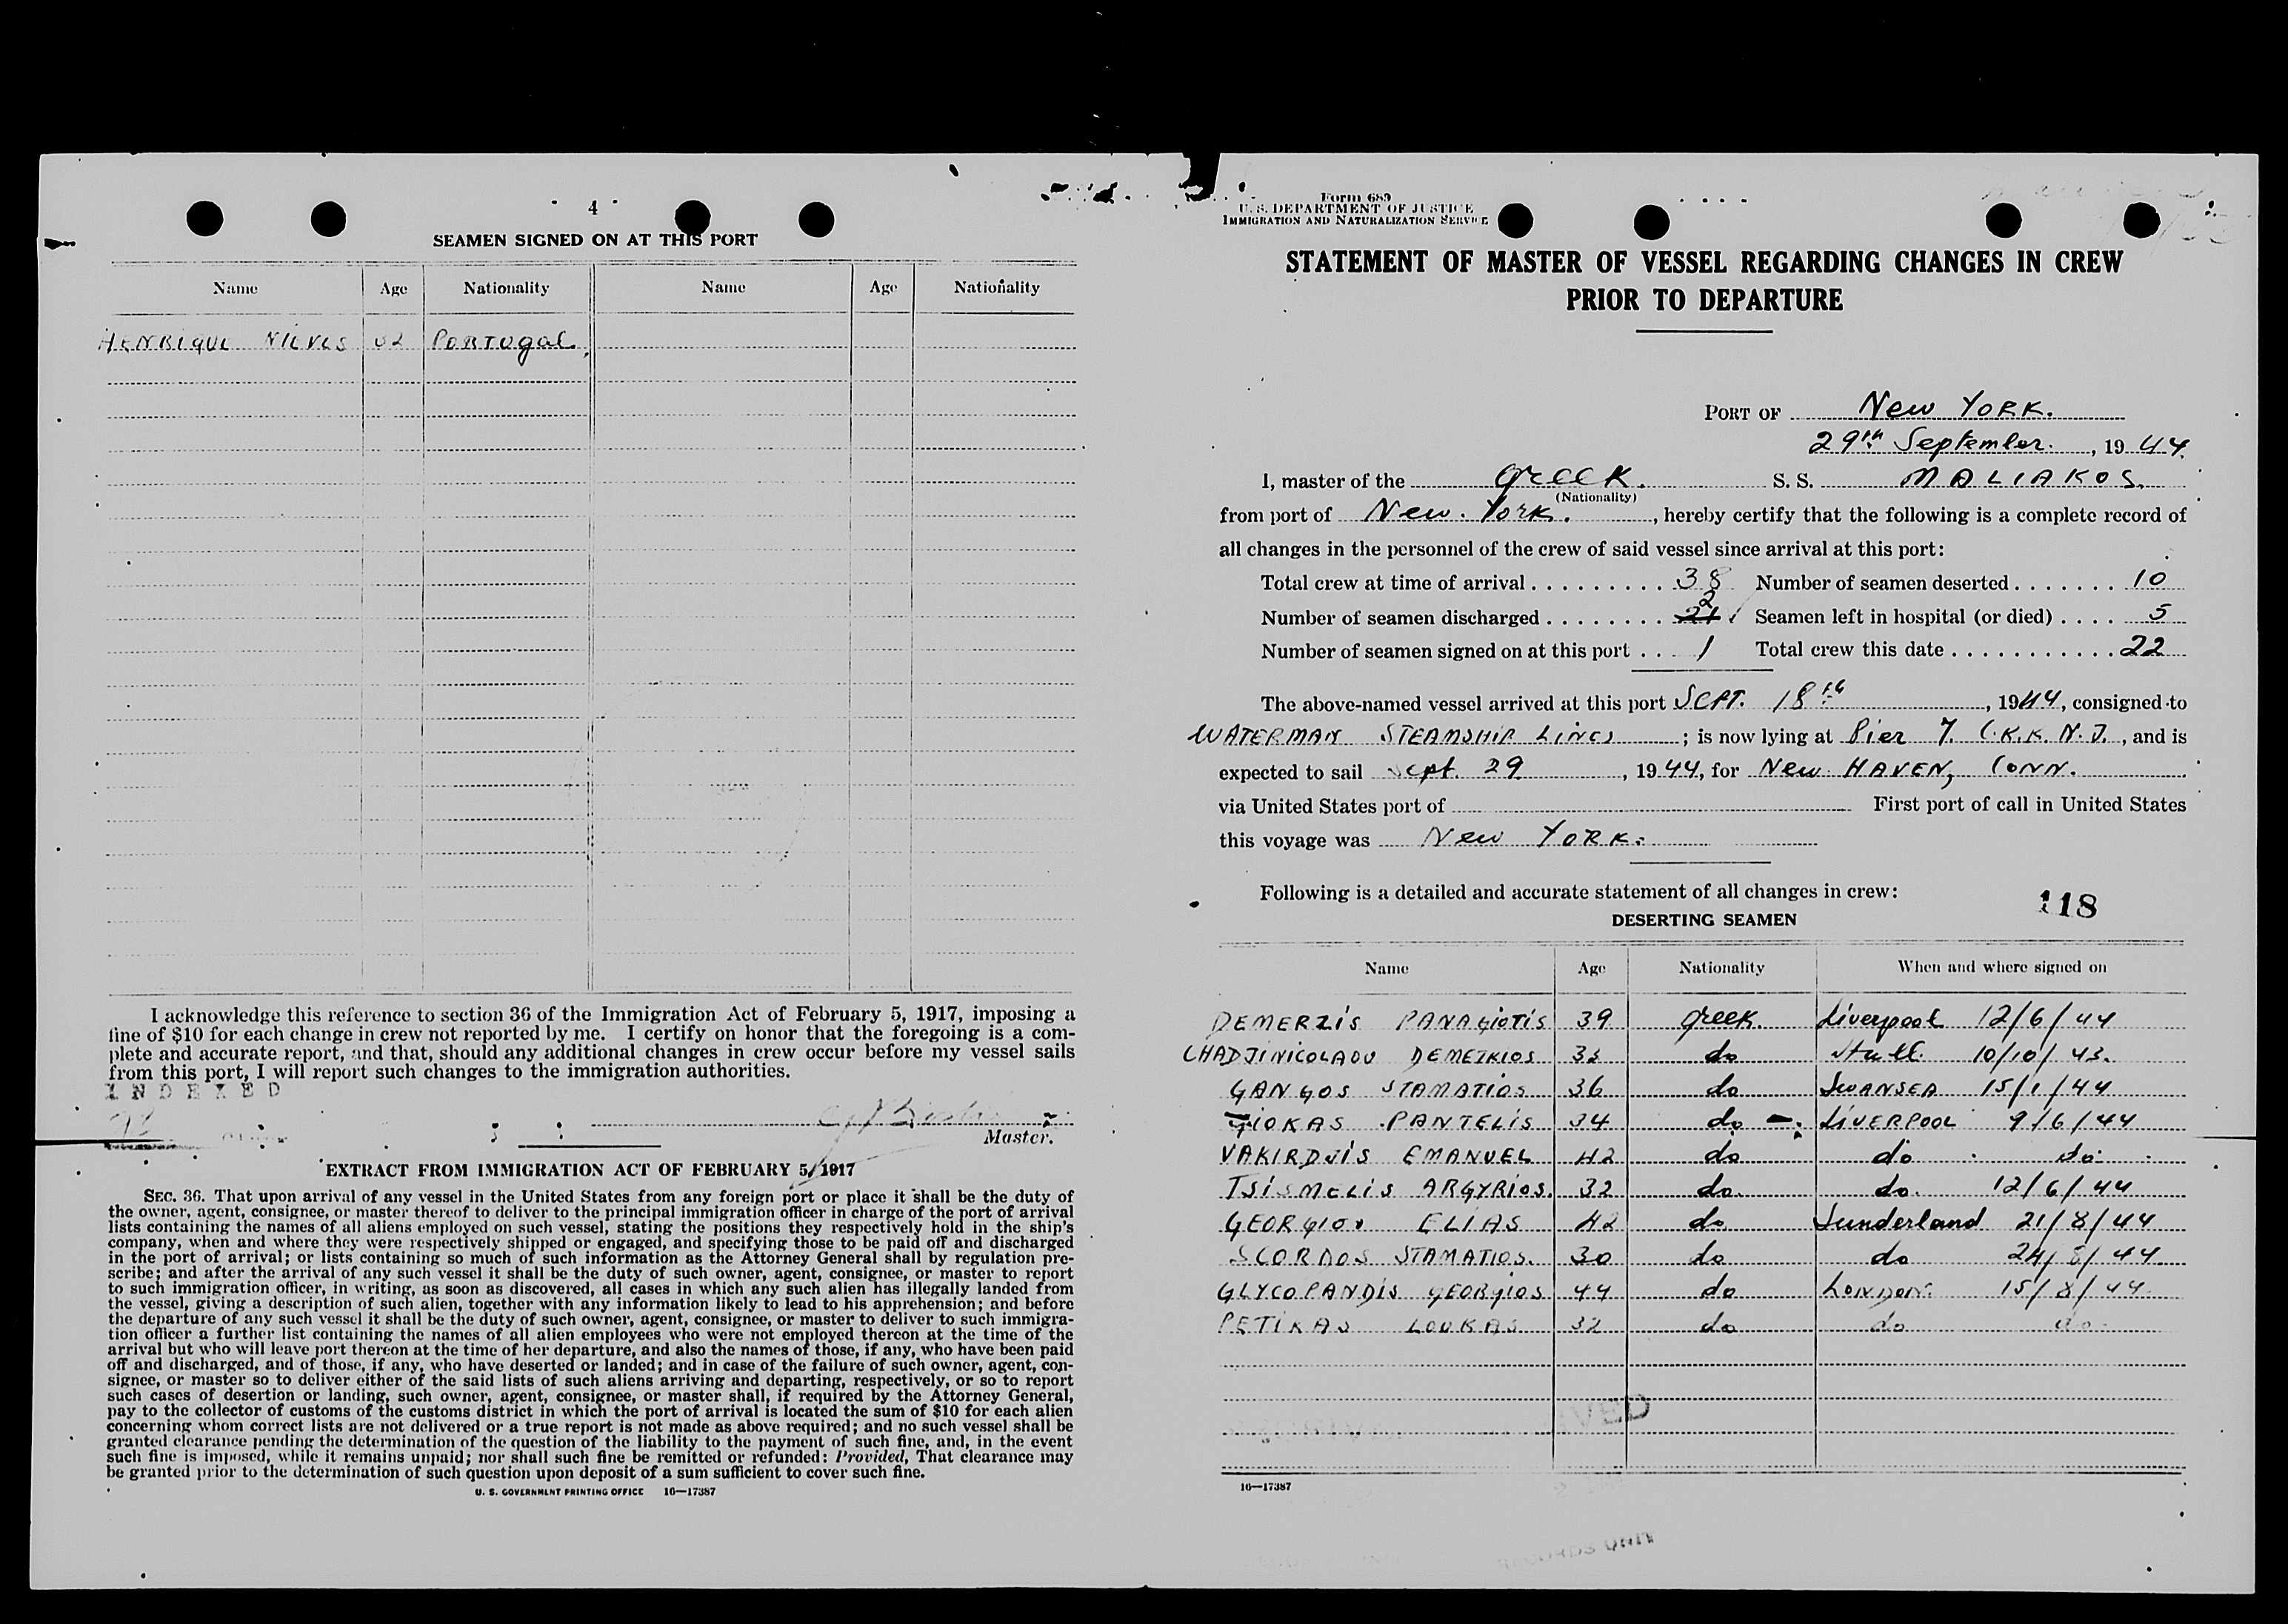 4
SEAMEN SIGNED ON AT THIS PORT
Name Age Nationality Name Age Nationality
HENRIQUE 32 PORTUGAL.
I acknowledge this reference to section 36 of the Immigration Act of February 5, 1917, imposing a
fine of $10 for each change in crew not reported by me. I certify on honor that the foregoing is a com-
plete and accurate report, and that, should any additional changes in crew occur before my vessel sails
from this port, I will report such changes to the immigration authorities.
INDEXED
Master.
EXTRACT FROM IMMIGRATION ACT OF FEBRUARY 5, 1917
SEC. 36. That upon arrival of any vessel in the United States from any foreign port or place it shall be the duty of
the owner, agent, consignee, or master thereof to deliver to the principal immigration officer in charge of the port of arrival
lists containing the names of all aliens employed on such vessel, stating the positions they respectively hold in the ship's
company, when and where they were respectively shipped or engaged, and specifying those to be paid off and discharged
in the port of arrival; or lists containing so much of such information as the Attorney General shall by regulation pre-
scribe; and after the arrival of any such vessel it shall be the duty of such owner, agent, consignee, or master to report
to such immigration officer, in writing, as soon as discovered, all cases in which any such alien has illegally landed from
the vessel, giving a description of such alien, together with any information likely to lead to his apprehension; and before
the departure of any such vessel it shall be the duty of such owner, agent, consignee, or master to deliver to such immigra-
tion officer a further list containing the names of all alien employees who were not employed thereon at the time of the
arrival but who will leave port thereon at the time of her departure, and also the names of those, if any, who have been paid
off and discharged, and of those, if any, who have deserted or landed; and in case of the failure of such owner, agent, con-
signee, or master so to deliver either of the said lists of such aliens arriving and departing, respectively, or so to report
such cases of desertion or landing, such owner, agent, consignee, or master shall, if required by the Attorney General,
pay to the collector of customs of the customs district in which the port of arrival is located the sum of $10 for each alien
concerning whom correct lists are not delivered or a true report is not made as above required; and no such vessel shall be
granted clearance pending the determination of the question of the liability to the payment of such fine, and, in the event
such fine is imposed, while it remains unpaid; nor shall such fine be remitted or refunded: Provided, That clearance may
be granted prior to the determination of such question upon deposit of a sum sufficient to cover such fine.
U. S. GOVERNMENT PRINTING OFFICE 16—17387
Form 689
U. S. DEPARTMENT OF JUSTICE
IMMIGRATION AND NATURALIZATION SERVICE
STATEMENT OF MASTER OF VESSEL REGARDING CHANGES IN CREW
PRIOR TO DEPARTURE
PORT OF New YORK.
29th September. , 1944.
I, master of the greek. S. S. MALIAKOS.
(Nationality)
from port of New. York. , hereby certify that the following is a complete record of
all changes in the personnel of the crew of said vessel since arrival at this port:
Total crew at time of arrival . . . . . . . . . . 38 Number of seamen deserted . . . . . . . 10
Number of seamen discharged . . . . . . . . 2 Seamen left in hospital (or died) . . . . 5
Number of seamen signed on at this port . . . 1 Total crew this date . . . . . . . . . . . . 22
The above-named vessel arrived at this port SEPT. 18th , 1944, consigned to
WATERMAN STEAMSHIP LINES ; is now lying at Pier 7. N.J. , and is
expected to sail Sept. 29 , 1944, for New HAVEN, CONN.
via United States port of First port of call in United States
this voyage was New YORK.
Following is a detailed and accurate statement of all changes in crew:
118
DESERTING SEAMEN
Name Age Nationality When and where signed on
DEMERZIS PANAGIOTIS 39 greek. Liverpool 12/6/44
CHADJINICOLAOU 10/10/43.
GANGOS STAMATIOS 36 do SWANSEA 15/1/44
GIOKAS PANTELIS 34 do LIVERPOOL 9/6/44
VAKIRDJIS EMANUEL 42 do do do
TSISMELIS ARGYRIOS. 32 do. do. 12/6/44
GEORGIOU ELIAS 42 do Sunderland 21/8/44
SCORDOS STAMATIOS. 30 do do 24/8/44
GLYCOPANDIS GEORGIOS 44 do LONDON. 15/8/44
PETIKAS LOUKAS 32 do do do
16—17387